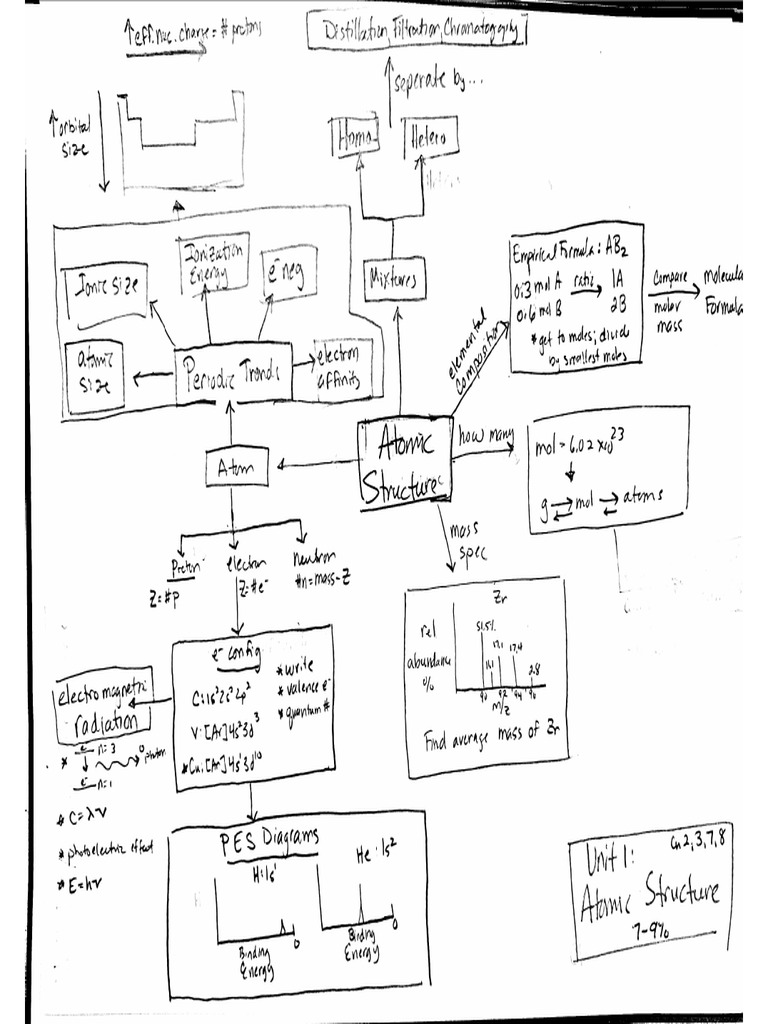 ↑eff.nuc.charge = # protons
Distillation, Filtration, Chromatography
seperate by...
↑orbital
size
Homo
Hetero
Mixtures
Ionization
Energy
e⁻neg
Ionic size
atomic
size
Periodic Trends
electron
affinity
elemental
composition
Empirical Formula: AB₂
0.3 mol A ratio 1A
0.6 mol B 2B
*get to moles; divide
by smallest moles
Compare
molar
mass
Molecula
Formula
Atomic
Structure
how many
mol = 6.02 x10²³
g mol atoms
Atom
mass
spec
Proton
Z=#p
electron
Z=#e⁻
neutron
#n=mass-Z
Zr
rel
abundance
%
51.5%
11.1
17.1
17.4
2.8
90 92 94 96
m/z
Find average mass of Zr
e⁻ config
C:1s²2s²2p²
V:[Ar]4s²3d³
*Cu:[Ar]4s¹3d¹⁰
*write
*valence e⁻
*quantum #
electromagnetic
radiation
* e⁻ n=3
photon
e⁻ n=1
* C=λν
* photoelectric effect
* E=hν
PES Diagrams
H:1s¹
He:1s²
0
Binding
Energy
0
Binding
Energy
Unit 1:
Atomic Structure
7-9%
Ch 2,3,7,8